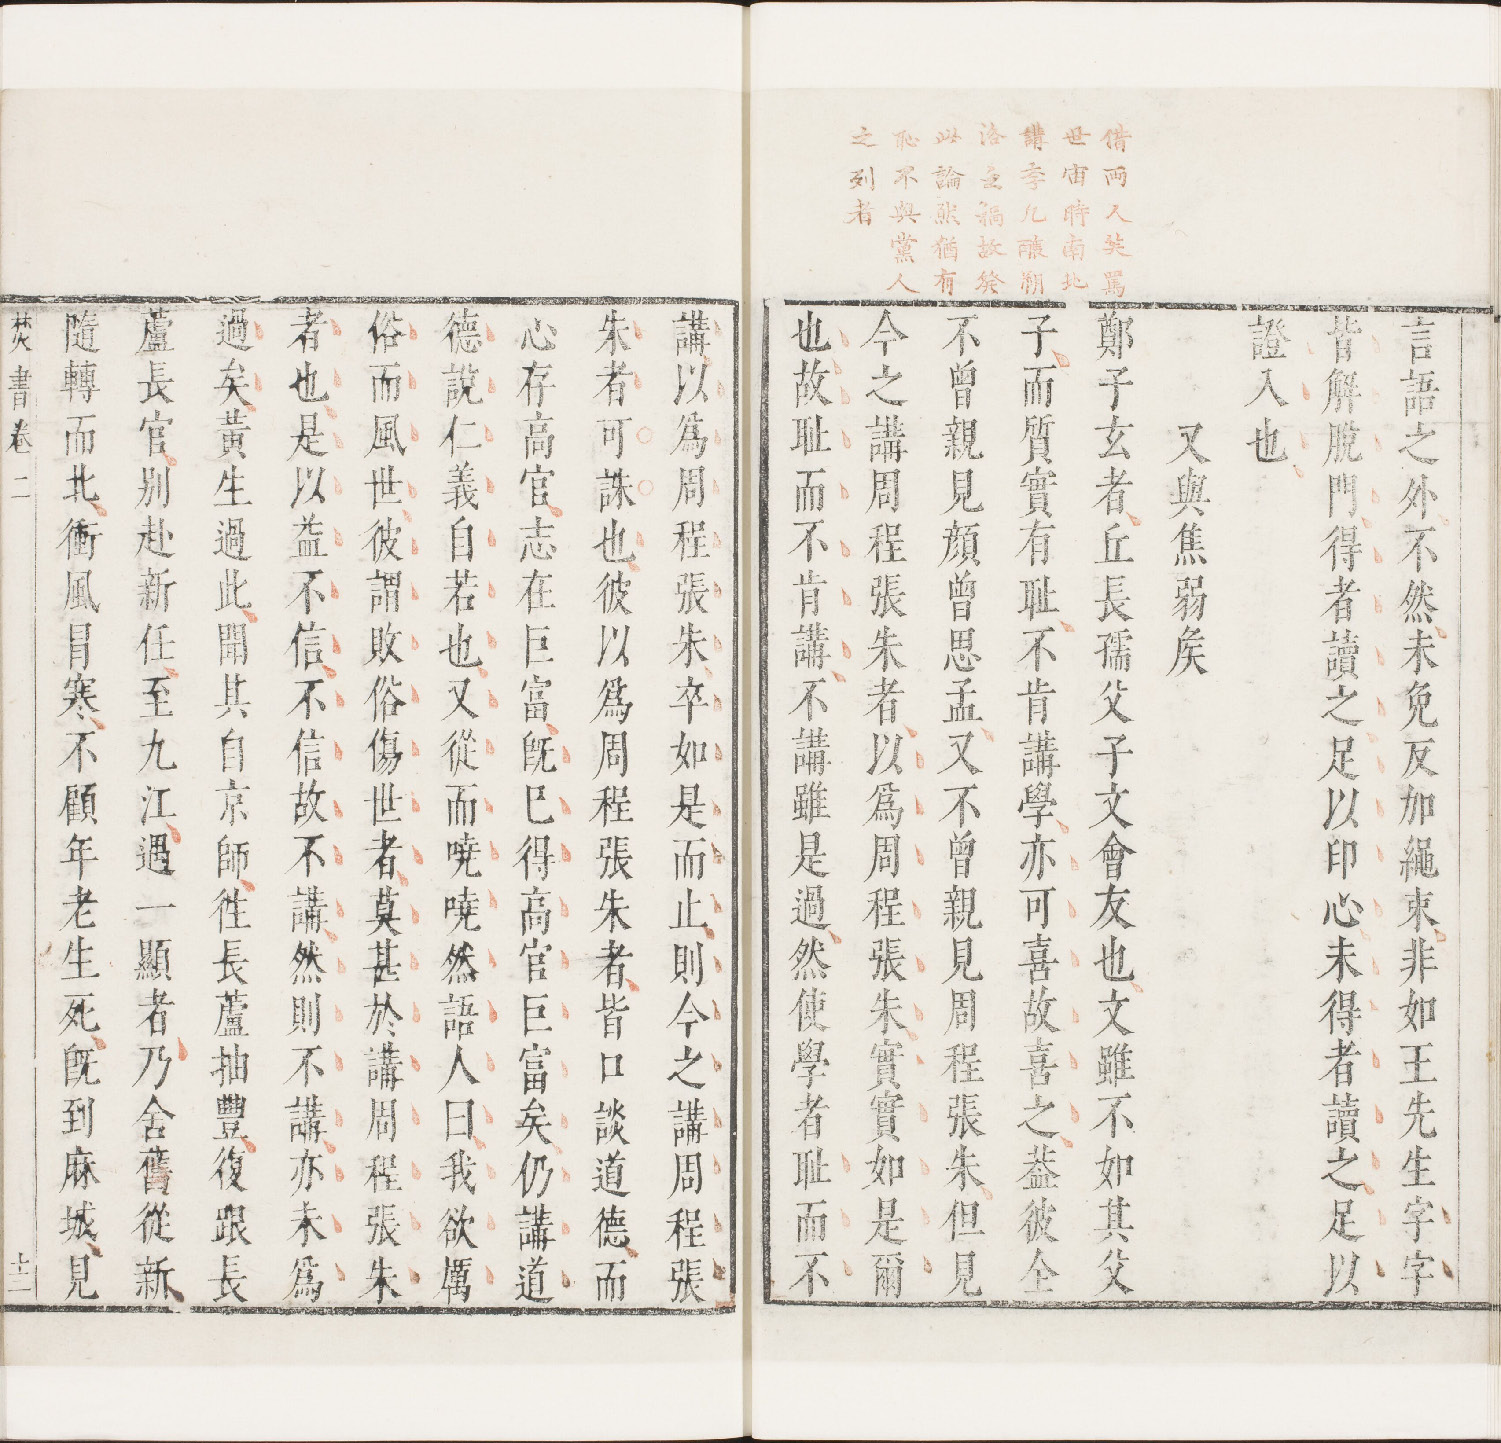 言語之外不然未免反加繩束非如王先生字字
皆解脫門得者讀之足以印心未得者讀之足以
證入也
又與焦弱矦
鄭子玄者丘長孺父子文會友也文雖不如其父
子而質實有耻不肯講學亦可喜故喜之葢彼全
不曾親見顔曾思孟又不曾親見周程張朱但見
今之講周程張朱者以爲周程張朱實實如是爾
也故耻而不肯講不講雖是過然使學者耻而不
借兩人笑罵
世宙時南北
講學凡釀朔
洛之禍故發
此論然猶有
恥不與黨人
之列者
講以爲周程張朱卒如是而止則今之講周程張
朱者可誅也彼以爲周程張朱者皆口談道德而
心存高官志在巨富旣巳得高官巨富矣仍講道
德說仁義自若也又從而嘵嘵然語人曰我欲厲
俗而風世彼謂敗俗傷世者莫甚於講周程張朱
者也是以益不信不信故不講然則不講亦未爲
過矣黃生過此聞其自京師徃長蘆抽豐復跟長
蘆長官別赴新任至九江遇一顯者乃舍舊從新
隨轉而北衝風冒寒不顧年老生死旣到麻城見
焚書卷二
十二